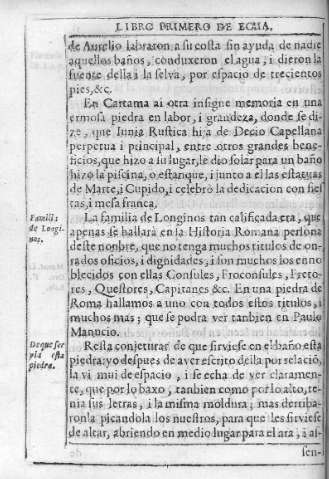 LIBRO PRIMERO DE ECIIA.
de Aurelio labraron a su costa sin ayuda de nadie
aquellos baños, conduxeron el agua, i dieron la
fuente della i la selva, por espacio de trecientos
pies, &c.
En Cartama ai otra insigne memoria en una
ermosa piedra en labor, i grandeza, donde se di-
ze, que Iunia Rustica hija de Decio Capellana
perpetua i principal, entre otros grandes bene-
ficios, que hizo a su lugar, le dio solar para un baño
hizo la piscina, o estanque, i junto a el las estatuas
de Marte, i Cupido, i celebrò la dedicacion con fies
tas, i mesa franca.
Familia
de Longi-
nos.
La familia de Longinos tan calificada era, que
apenas se hallará en la Historia Romana persona
deste nonbre, que no tenga muchos titulos de on-
rados oficios, i dignidades, i son muchos los enno
blecidos con ellas Consules, Proconsules, Preto-
res, Questores, Capitanes &c. En una piedra de
Roma hallamos a uno con todos estos titulos, i
muchos mas; que se podra ver tanbien en Paulo
Manucio.
De que ser
via esta
piedra.
Resta conjeturar de que sirviese en el baño esta
piedra: yo despues de aver escrito della por relaciõ,
la vi mui de espacio, i se echa de ver claramen-
te, que por lo baxo, tanbien como por lo alto, te-
nia sus letras, i la misma moldura; mas derriba-
ronla picandola los nuestros, para que les sirviese
de altar, abriendo en medio lugar para el ara, i al-
sen-